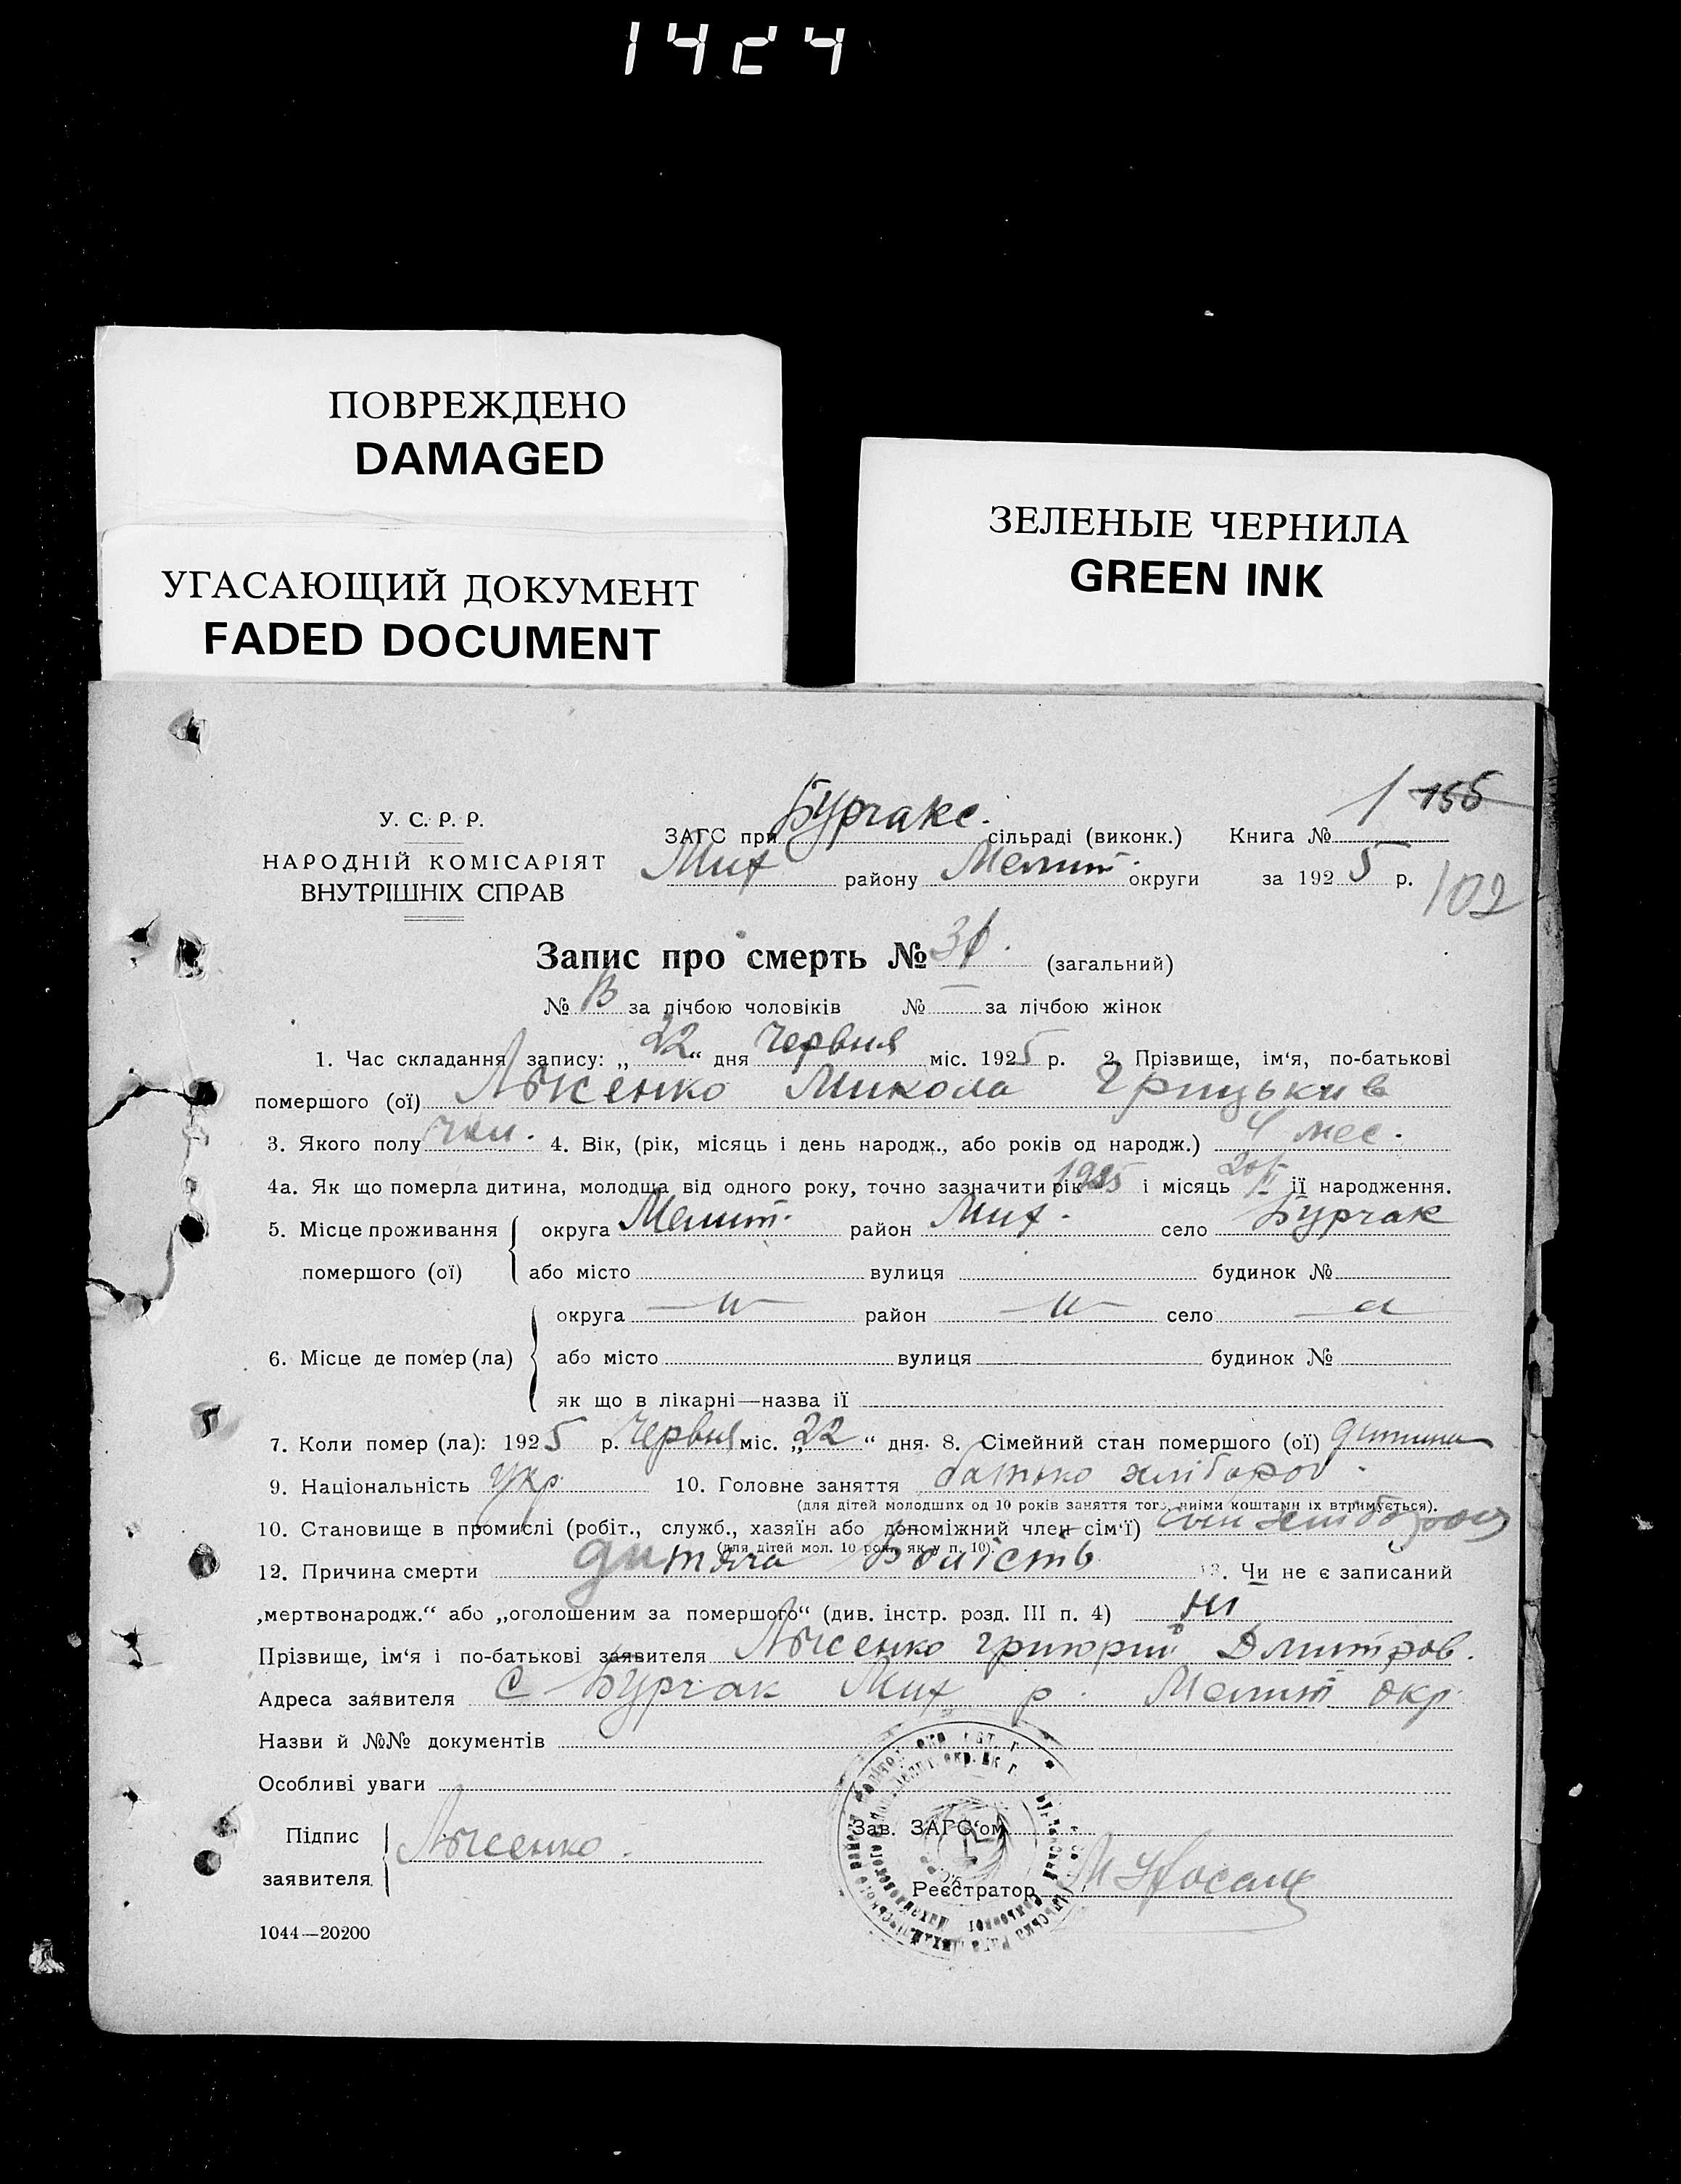 1424
ПОВРЕЖДЕНО
DAMAGED
УГАСАЮЩИЙ ДОКУМЕНТ
FADED DOCUMENT
ЗЕЛЕНЫЕ ЧЕРНИЛА
GREEN INK
У. С. Р. Р.
НАРОДНІЙ КОМІСАРІЯТ
ВНУТРІШНІХ СПРАВ
ЗАГС при Бурчакс. сільраді (виконк.) Книга № 1 156
Мих району Мелит. округи за 1925 р. 102
Запис про смерть № 31. (загальний)
№ 13 за лічбою чоловіків № — за лічбою жінок
1. Час складання запису: „22“ дня Червня міс. 1925 р. 2. Прізвище, ім‘я, по-батькові
помершого (ої) Лысенко Микола Грицькив
3. Якого полу чол. 4. Вік, (рік, місяць і день народж., або років од народж.) 4 мес.
4а. Як що померла дитина, молодша від одного року, точно зазначити рік 1925 і місяць II її народження.
5. Місце проживання округа Мелит. район Мих. село Бурчак
помершого (ої) або місто вулиця будинок №
округа —„— район —„— село —„—
6. Місце де помер (ла) або місто вулиця будинок №
як що в лікарні—назва її
7. Коли помер (ла): 1925 р. Червня міс. „22“ дня. 8. Сімейний стан помершого (ої) дитина
9. Національність Укр. 10. Головне заняття батько хлібороб.
(для дітей молодших од 10 років заняття того, чиїми коштами їх втримується).
10. Становище в промислі (робіт., служб., хазяїн або допоміжний член сім‘ї) син хлібороба
(для дітей мол. 10 років, як у п. 10).
12. Причина смерти дитяча Болість 13. Чи не є записаний
„мертвонародж.“ або „оголошеним за помершого“ (див. інстр. розд. III п. 4) ні
Прізвище, ім‘я і по-батькові заявителя Лысенко Григорий Дмитров.
Адреса заявителя С Бурчак Мих р. Мелит окр.
Назви й №№ документів
Особливі уваги
Підпис
заявителя Лысенко.
Зав. ЗАГС‘ом
Реєстратор
1044—20200